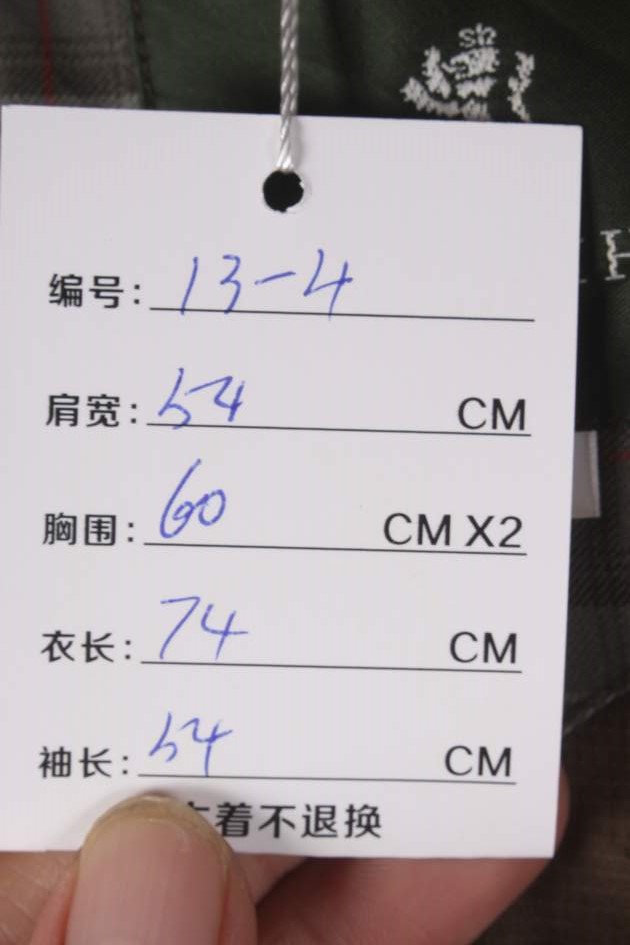 编号: 13-4
肩宽: 54 CM
胸围: 60 CM X2
衣长: 74 CM
袖长: 54 CM
着不退换